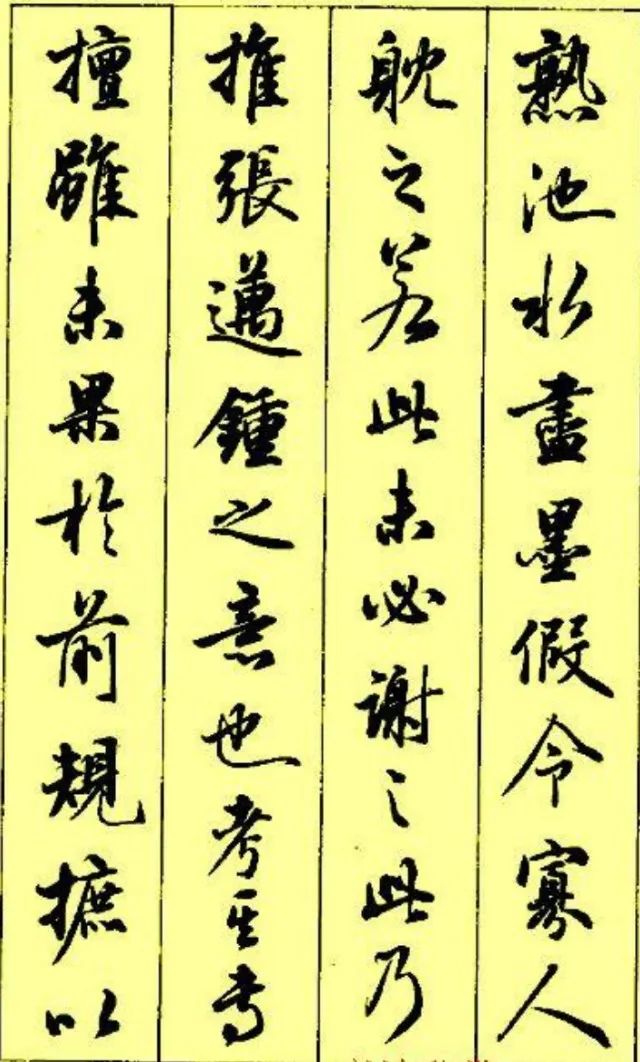 熟池水盡墨假令寡人
躭之若此未必謝之此乃
推張邁鍾之意也考其專
擅雖未果於前規摭以